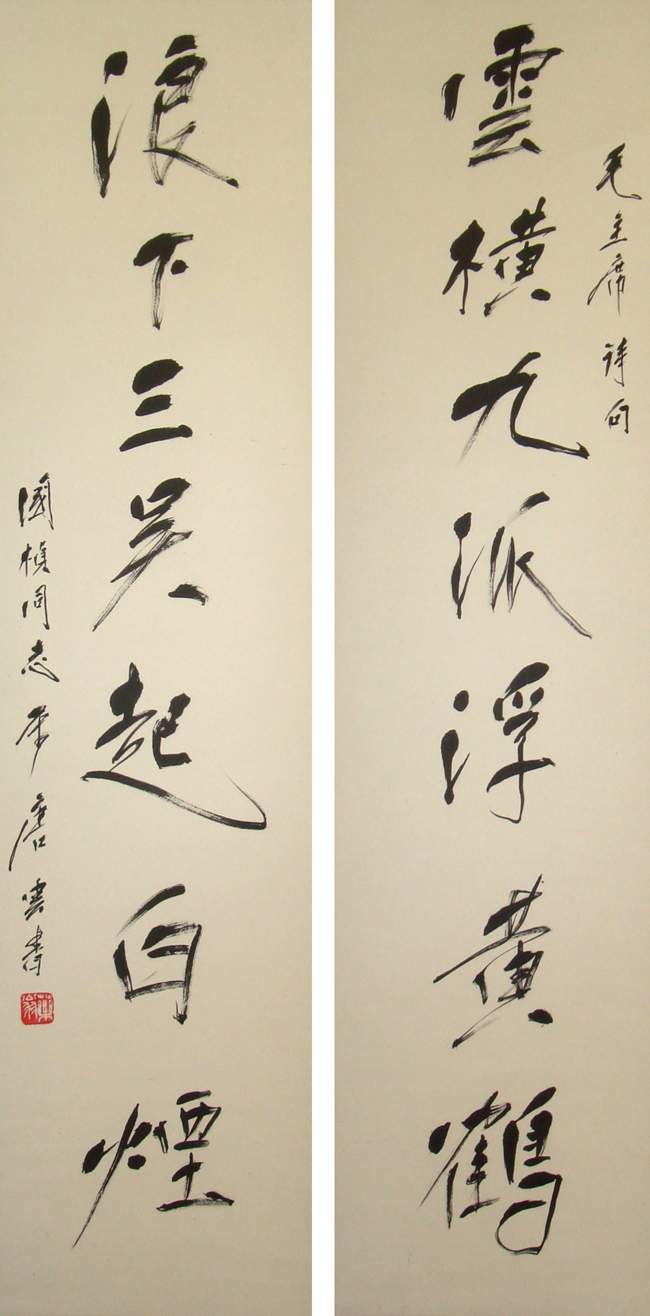 毛主席詩句
雲橫九派浮黃鶴
浪下三吳起白煙
國楨同志 唐雲書
藥翁